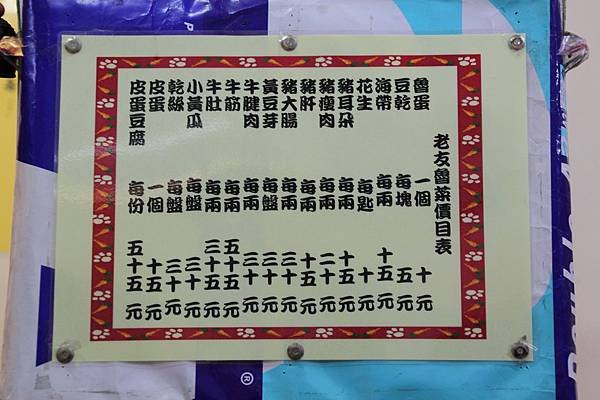 老友魯菜價目表
魯蛋 一個 十元
豆乾 每塊 五元
海帶 每兩 十五元
花生 每匙 十元
豬耳朵 每兩 十五元
豬瘦肉 每兩 二十元
豬肝 每兩 十五元
豬大腸 每兩 三十元
黃豆芽 每盤 三十元
牛腱肉 每兩 三十元
牛筋 每兩 五十五元
牛肚 每兩 三十五元
小黃瓜 每盤 三十元
乾絲 每盤 三十元
皮蛋 一個 十五元
皮蛋豆腐 每份 五十五元
®